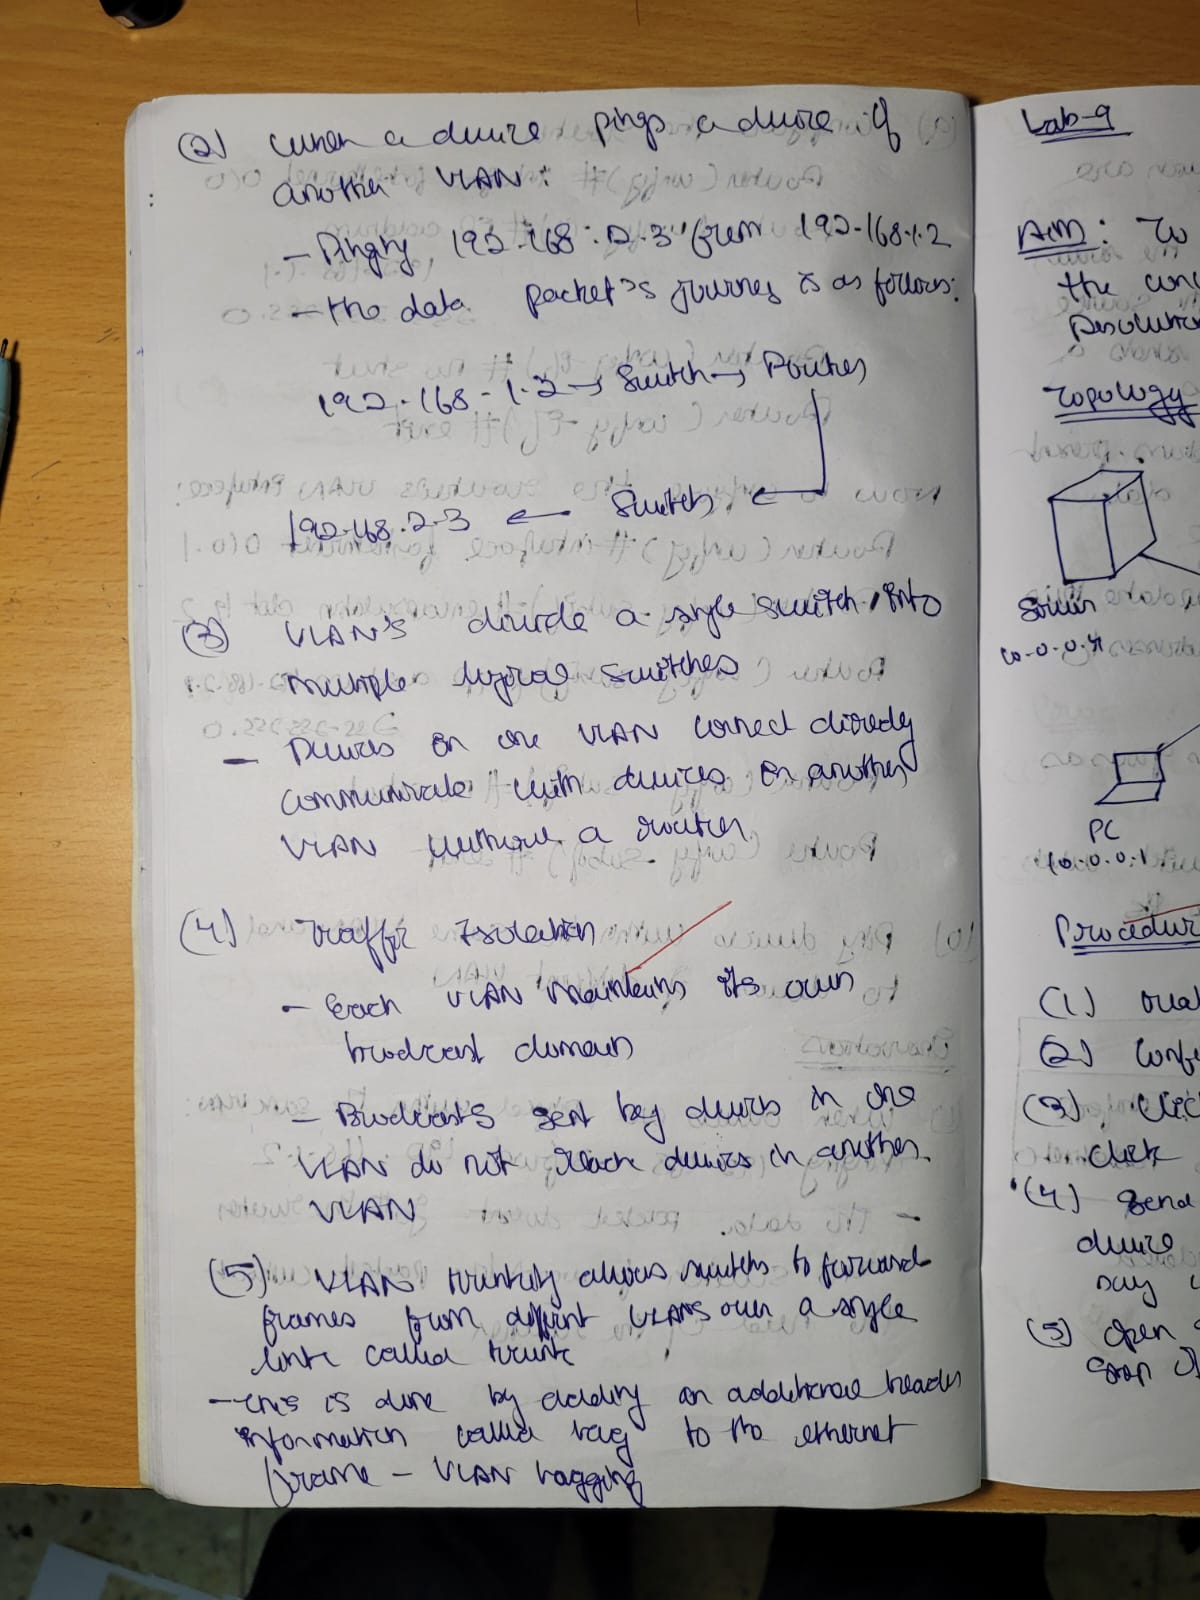 (2) When a device pings a device of
another VLAN:
- Pinging 192.168.2.3 from 192.168.1.2
- the data packet's journey is as follows:
192.168.1.2 → Switch → Router
192.168.2.3 ← Switch ←
(3) VLAN's divide a single switch into
multiple logical switches
- Devices on one VLAN connect directly
communicate with devices on another
VLAN without a router
(4) Traffic Isolation
- Each VLAN maintains its own
broadcast domain
- Broadcasts sent by devices in one
VLAN do not reach devices in another
VLAN
(5) VLAN trunking allows switches to forward
frames from different VLANs over a single
link called trunk
- this is done by adding an additional header
information called tag to the ethernet
frame - VLAN tagging
Lab-9
Aim: To
the
Topology
Server
10.0.0.4
PC
10.0.0.1
Procedure
(1)
(2)
(3) Click
click
(4) Send
device
say
(5) open